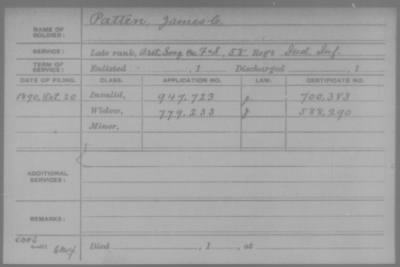 NAME OF SOLDIER: Patten, James C.
SERVICE: Late rank, Asst. Surg. Co. F&S, 58 Reg't Ind. Inf.
TERM OF SERVICE: Enlisted , 1 Discharged , 1
DATE OF FILING. CLASS. APPLICATION NO. LAW. CERTIFICATE NO.
1890, Oct. 20 Invalid, 947,723 700,383
Widow, 779,233 588,290
Minor,
ADDITIONAL SERVICES:
REMARKS:
Died , 1 , at